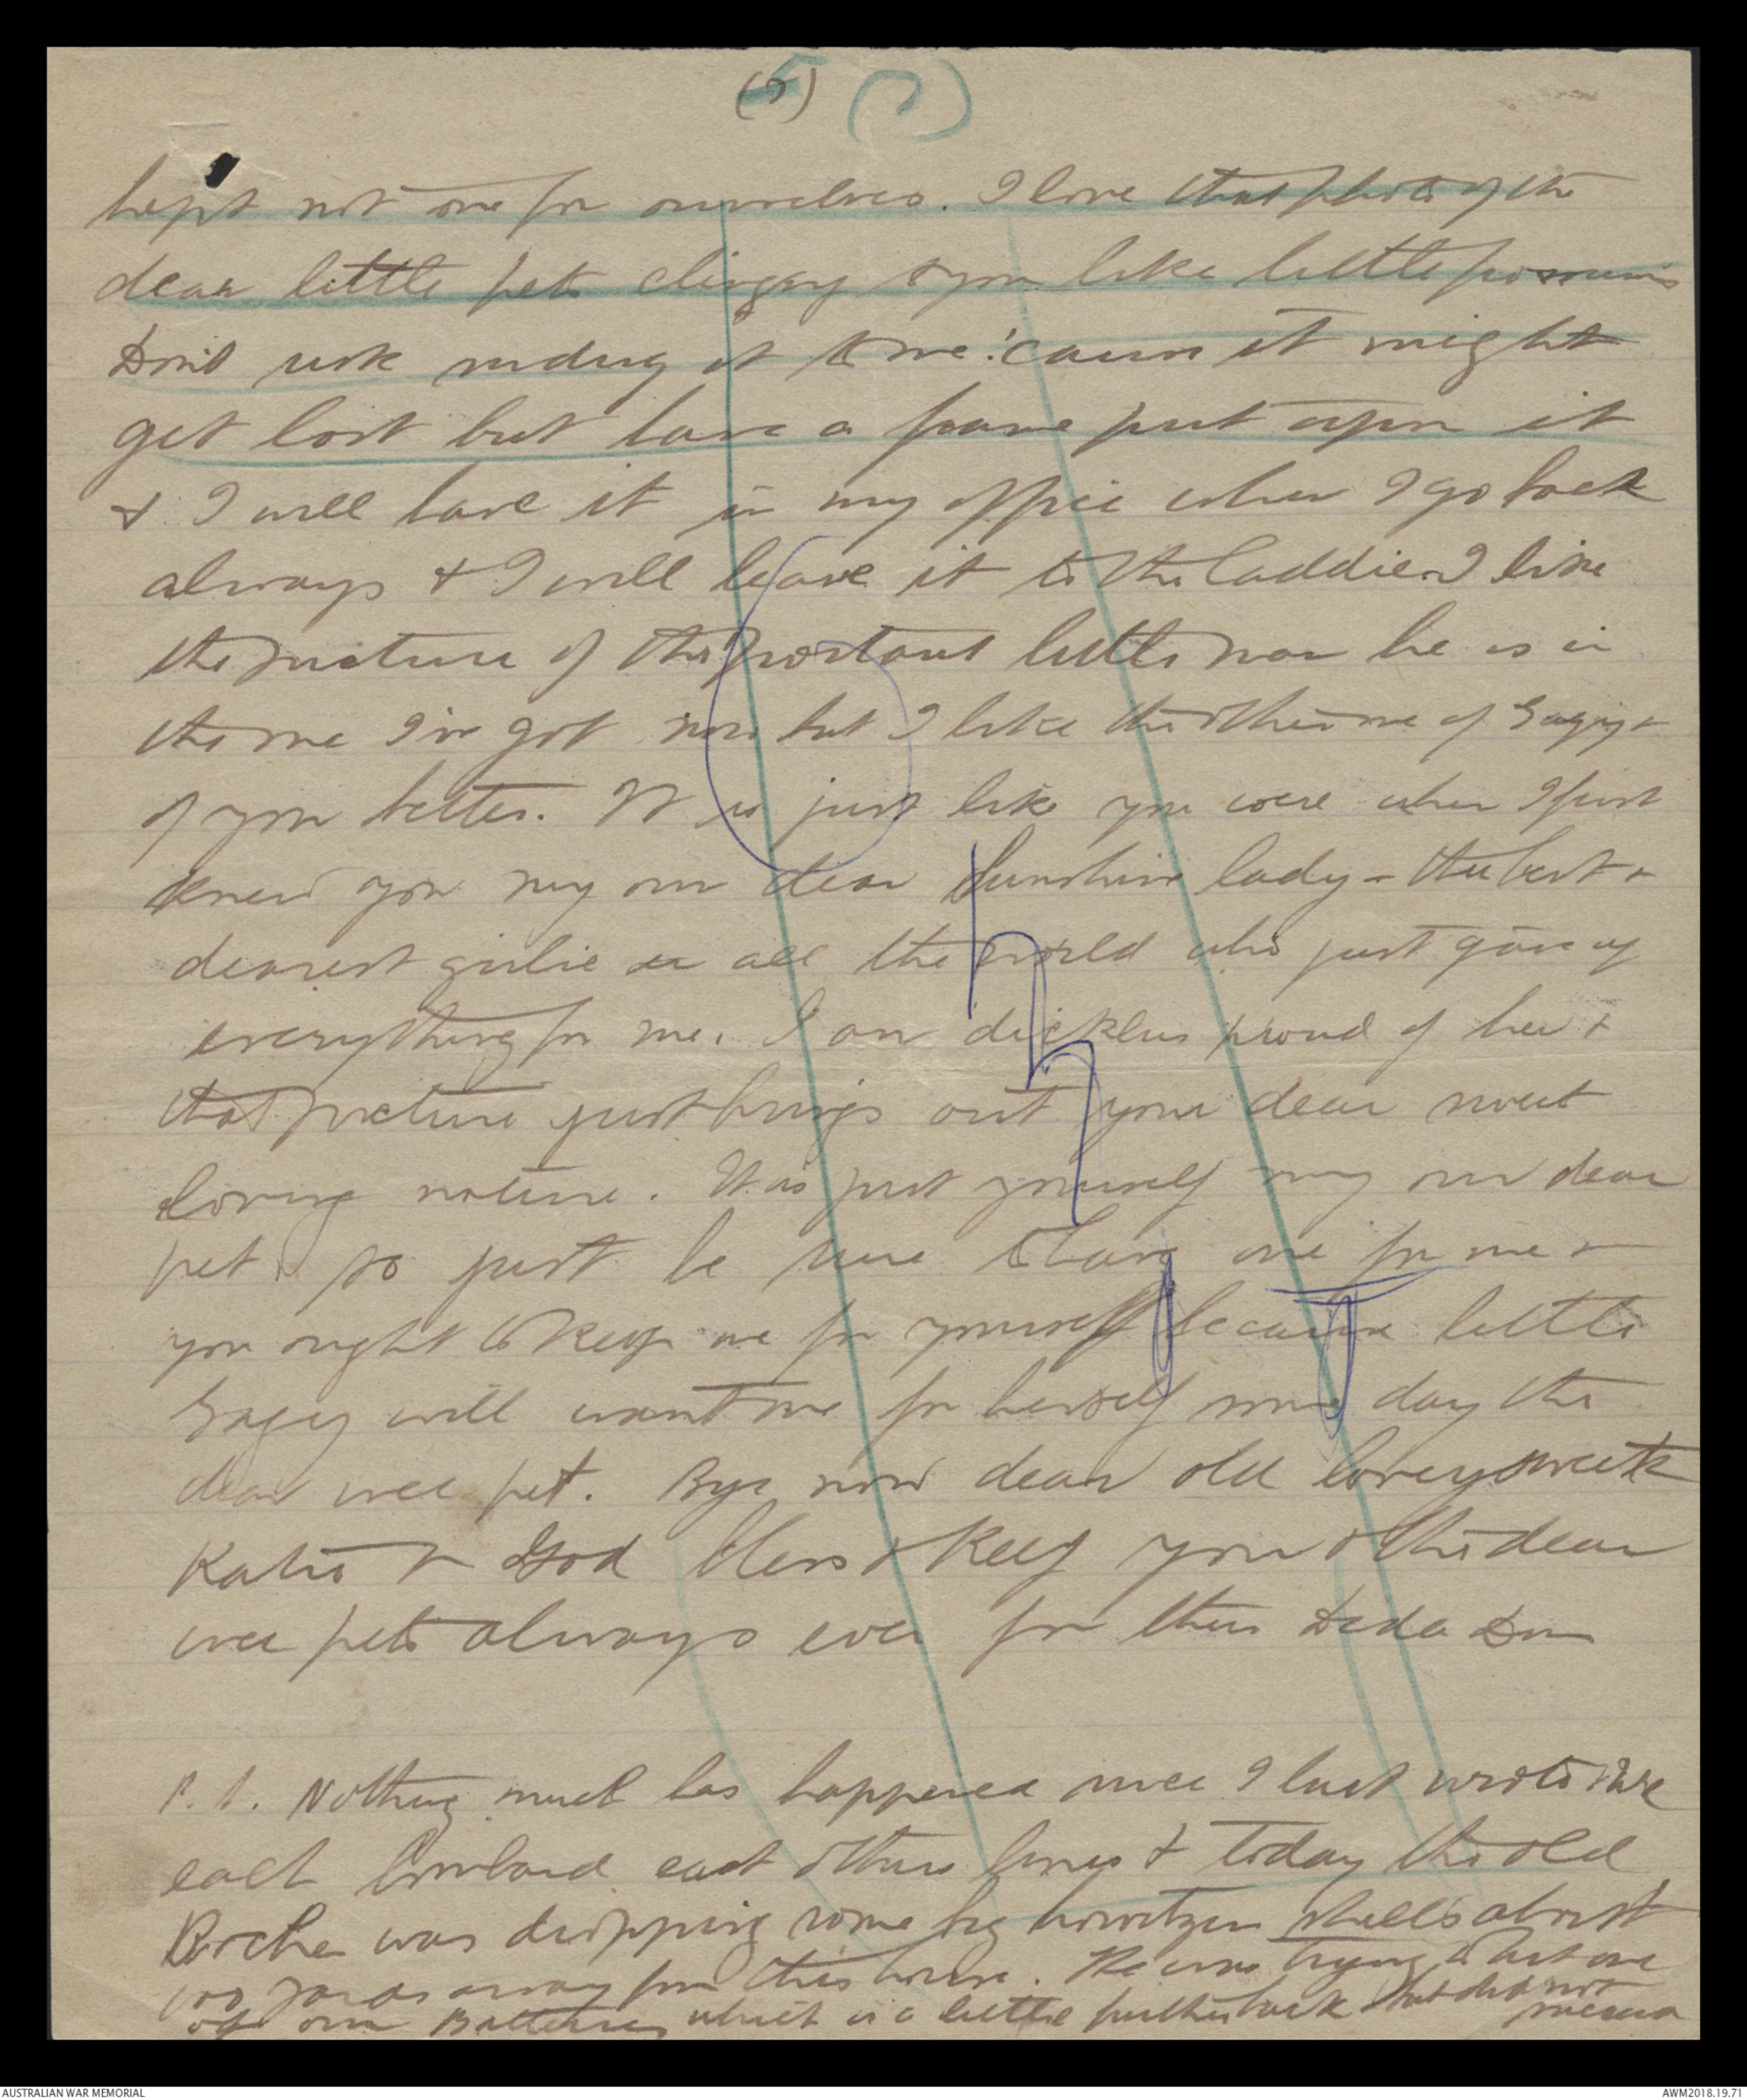 (5) (7)
kept not one for ourselves. I love that photo of the
dear little pets clinging to you like little possums
Don't risk sending it to me 'cause it might
get lost but have a frame put upon it
& I will have it in my office when I go back
always & I will leave it to the laddie. I like
the picture of the important little man he is in
the one I've got now but I like the other one of &
of you better. It is just like you were when I first
knew you my own dear Sunshine lady - the best &
dearest girlie in all the world who just gave up
everything for me. I am dickens proud of her &
that picture just brings out your dear sweet
loving nature. It is just yourself my own dear
pet so just be sure to have one for me &
you ought to keep one for yourself because little
will want one for herself some day the
dear wee pet. Bye now dear old lovey sweet
Katie & God bless & keep you & the dear
wee pets always ever for their Dada Don
P.S. Nothing much has happened since I last wrote. We
each bombard each others lines & today the old
Boche was dropping some big howitzer shells about
100 yards away from this house. He was trying to
of our Batteries which is a little further back but did not
succeed
AUSTRALIAN WAR MEMORIAL
AWM2018.19.71